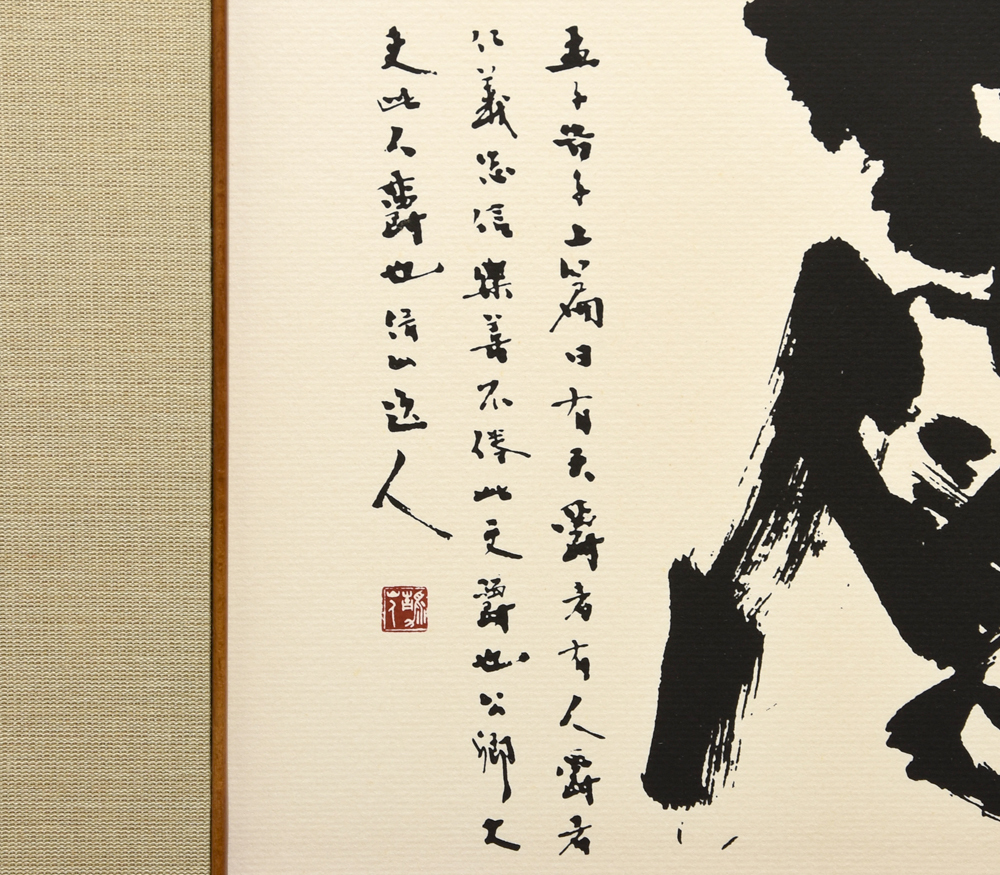 孟子告子上篇曰有天爵者有人爵者
仁義忠信樂善不倦此天爵也公卿大
夫此人爵也山人